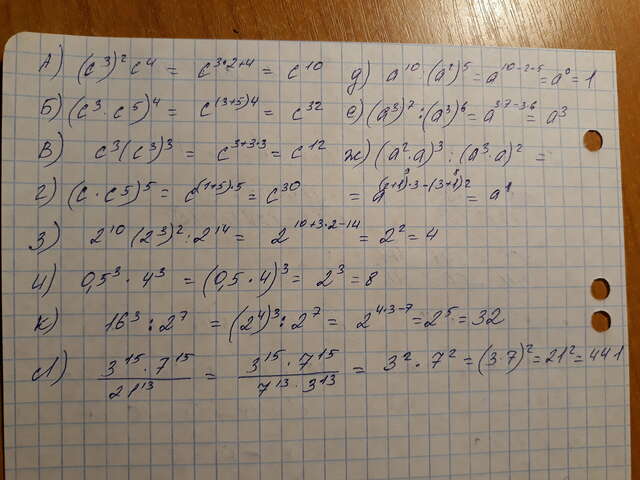 А) (c³)²c⁴ = c^{3·2+4} = c^{10}
Б) (c³·c⁵)⁴ = c^{(3+5)4} = c^{32}
В) c³(c³)³ = c^{3+3·3} = c^{12}
г) (c·c⁵)⁵ = c^{(1+5)·5} = c^{30}
д) a^{10}:(a²)⁵ = a^{10-2·5} = a⁰ = 1
е) (a³)⁷:(a³)⁶ = a^{3·7-3·6} = a³
ж) (a²·a)³:(a³·a)² =
= a^{(2+1)·3-(3+1)·2} = a¹
з) 2^{10}(2³)²:2^{14} = 2^{10+3·2-14} = 2² = 4
и) 0,5³·4³ = (0,5·4)³ = 2³ = 8
к) 16³:2⁷ = (2⁴)³:2⁷ = 2^{4·3-7} = 2⁵ = 32
л) 3^{15}·7^{15} / 21^{13} = 3^{15}·7^{15} / 7^{13}·3^{13} = 3²·7² = (3·7)² = 21² = 441